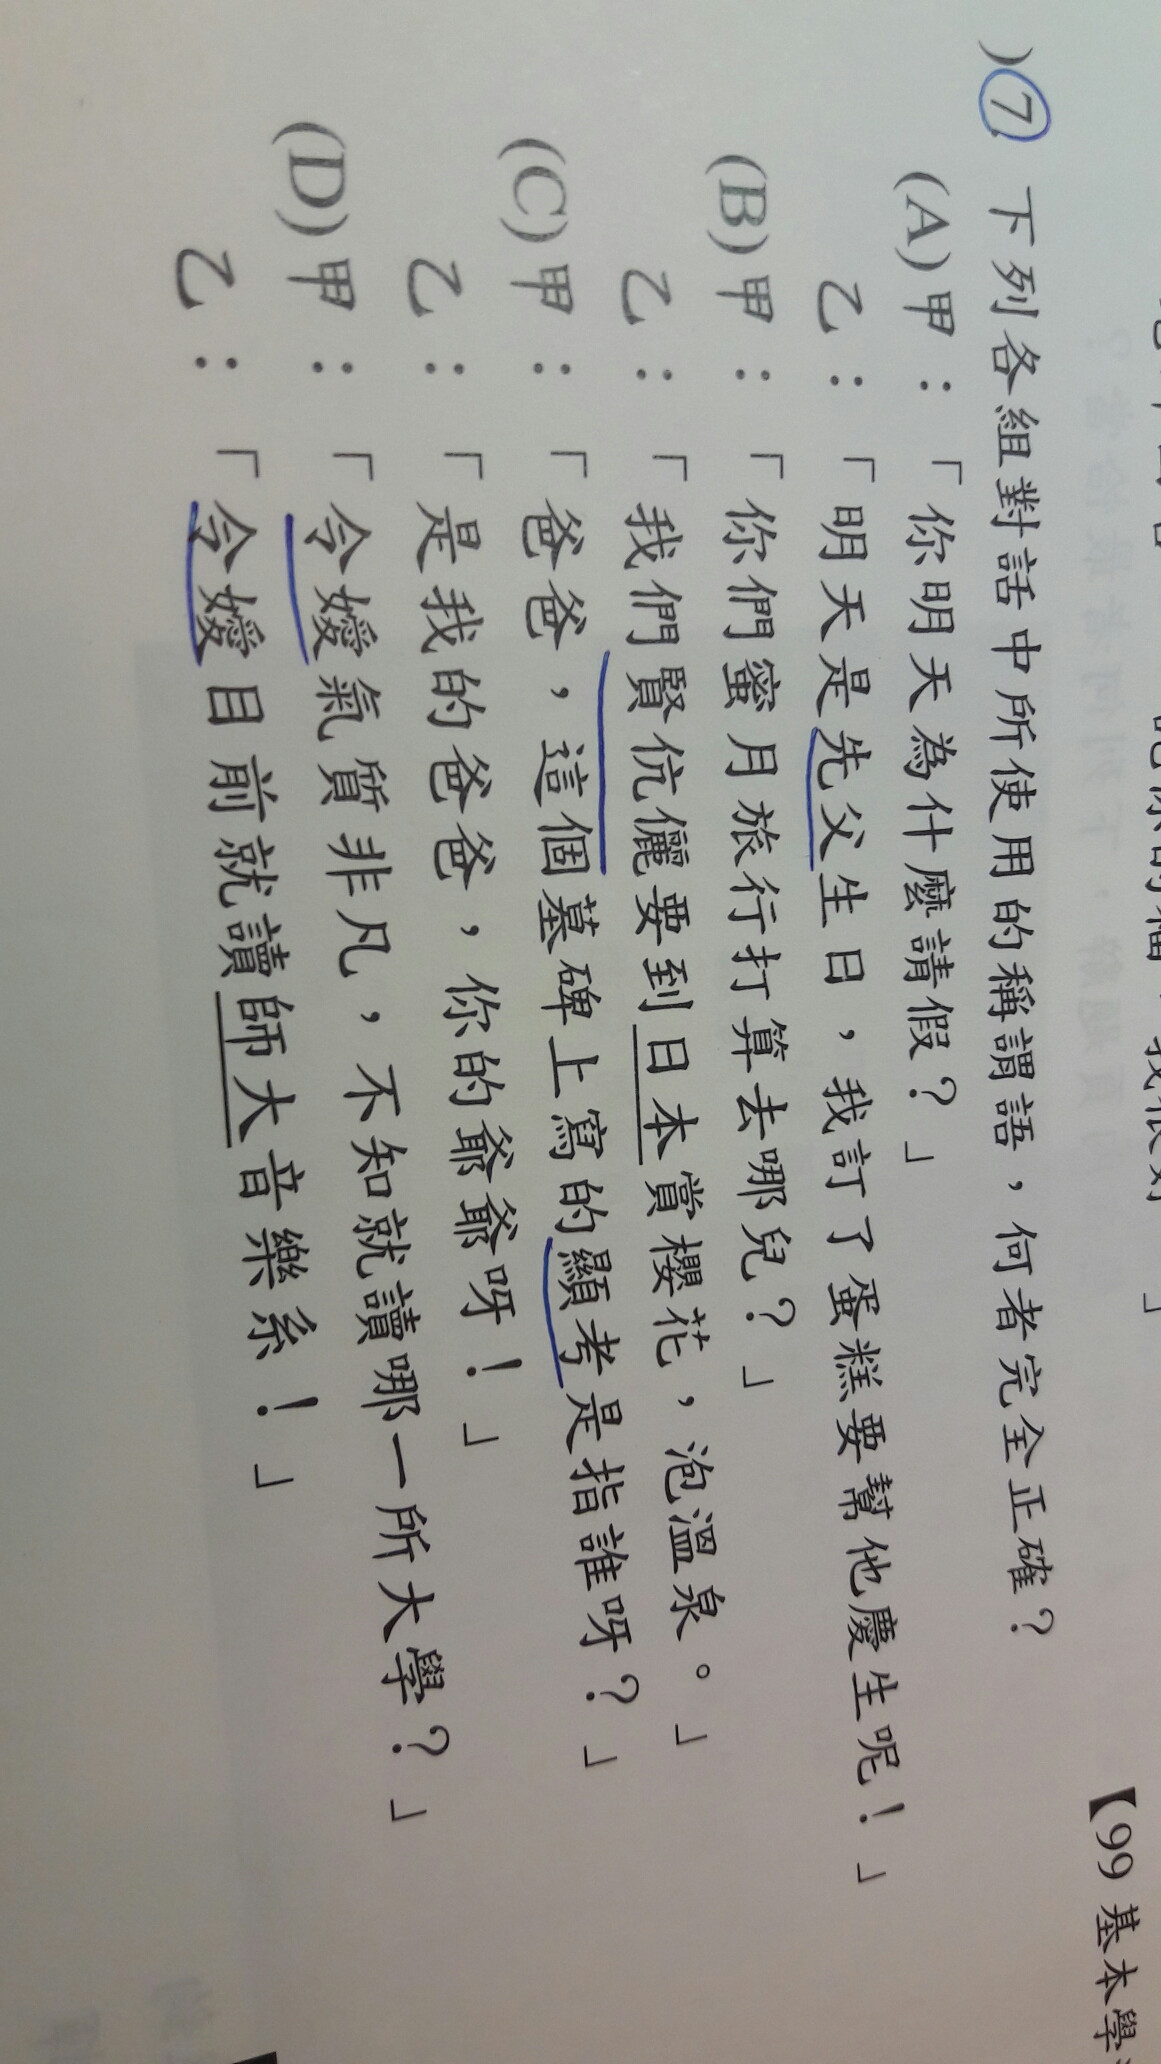 【99 基本學
)7 下列各組對話中所使用的稱謂語，何者完全正確？
(A)甲：「你明天為什麼請假？」
乙：「明天是先父生日，我訂了蛋糕要幫他慶生呢！」
(B)甲：「你們蜜月旅行打算去哪兒？」
乙：「我們賢伉儷要到日本賞櫻花，泡溫泉。」
(C)甲：「爸爸，這個墓碑上寫的顯考是指誰呀？」
乙：「是我的爸爸，你的爺爺呀！」
(D)甲：「令嬡氣質非凡，不知就讀哪一所大學？」
乙：「令嬡目前就讀師大音樂系！」